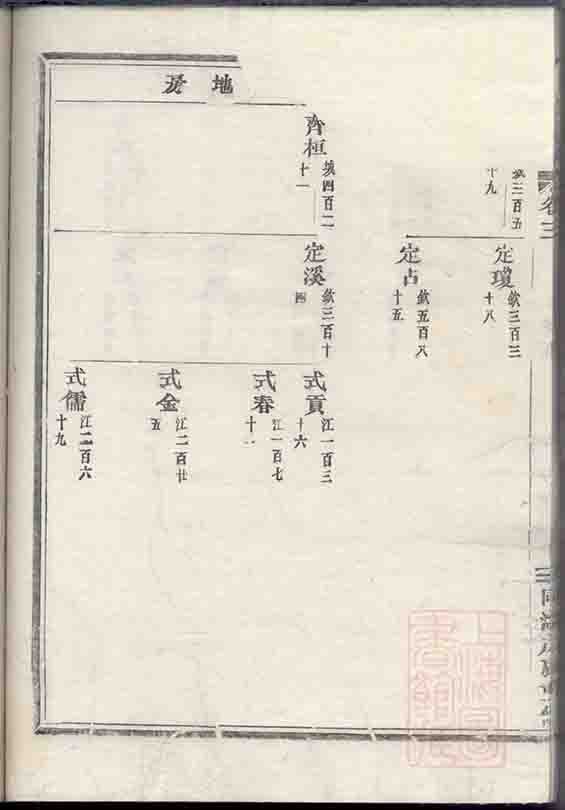 地房
卷三
三百五
十九
定瓊
欽三百三
十八
定占
欽五百八
十五
齊桓
四百二
十一
定溪
欽三百十
四
式貢
江一百三
十六
式春
江一百七
十一
式金
江二百廿
五
式儒
江二百六
十九
上海圖書館藏